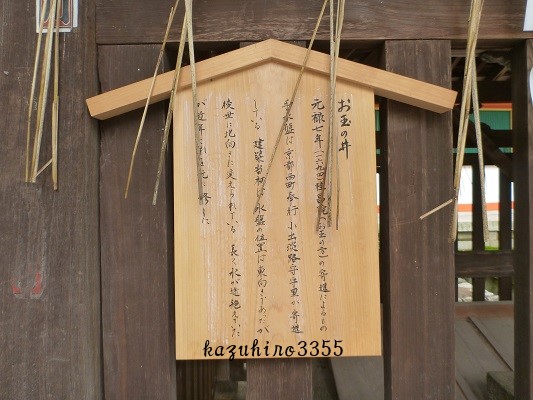 お玉の井
元禄七年(一六九四)桂昌院(お玉の方)の寄進によるもの
水盤は京都西町奉行小出淡路守守里が寄進
している 建築当初は水盤の位置は東向きであったが
後世に北向きに変えられている 長く水が途絶えていた
が近年これを元に修した
kazuhiro3355